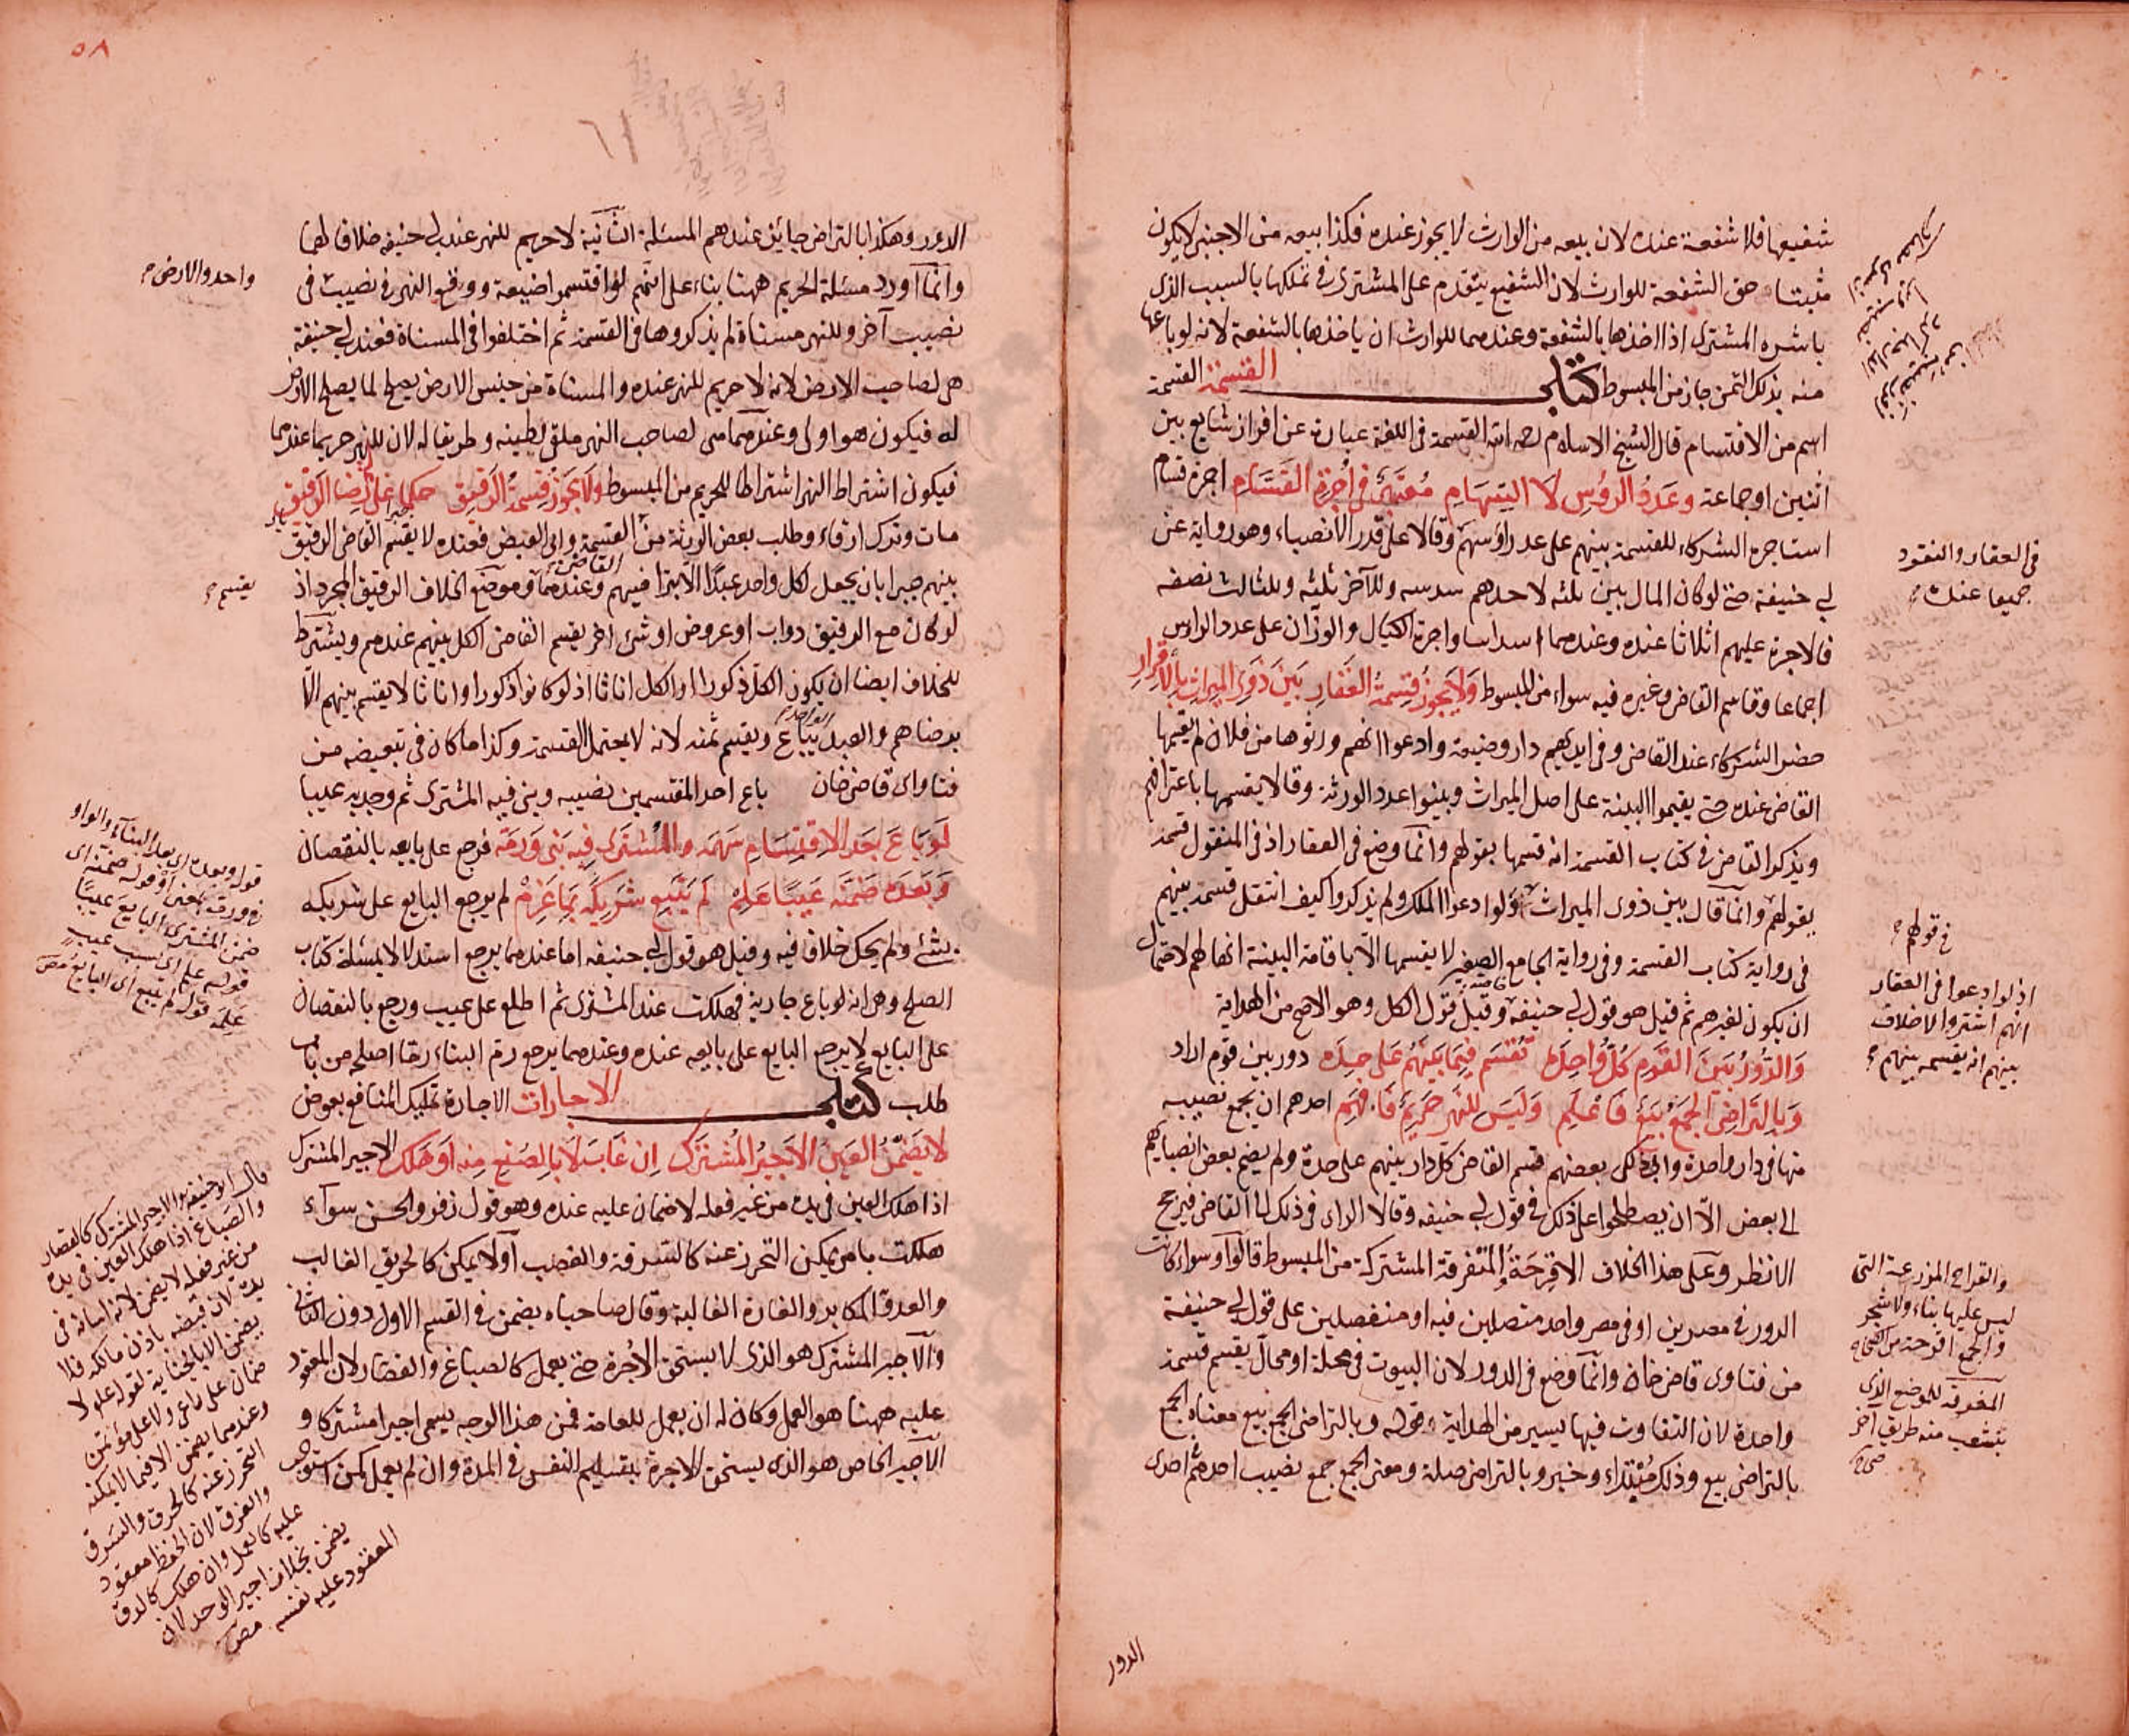 شفيعها فلا شفعة عنده لان بيعه من الوارث لا يجوز عنده فكذا بيعه من الاجنبي لا يكون
مثبتا حق الشفعة للوارث لان الشفيع يتقدم على المشترى في تملكها بالسبب الذى
باشره المشترى اذا اخذها بالشفعة وعندهما للوارث ان ياخذها بالشفعة لانه لو باعها
منه بذلك الثمن جاز من المبسوط كتاب القسمة القسمة
اسم من الاقتسام قال الشيخ الاسلام رحمه الله القسمة في اللغة عبارة عن افراز شايع بين
اثنين او جماعة وعدد الرؤس لا السهام معتبر في اجرة القسام اجرة قسام
استاجره الشركاء للقسمة بينهم على عدد رؤسهم وقالا على قدر الانصباء وهو رواية عن
ابي حنيفة حتى لو كان المال بين ثلثه لاحدهم سدسه وللآخر ثلثه وللثالث نصفه
فالاجرة عليهم اثلاثا عنده وعندهما اسداسا واجرة الكيال والوزان على عدد الرؤس
اجماعا وقاسم القاضى وغيره فيه سواء من المبسوط ولا يجوز قسمة العقار بين ذوى الميراث بالاقرار
حضر الشركاء عند القاضى وفي ايديهم دار وضيعة وادعوا انهم ورثوها من فلان لم يقسمها
القاضى عنده حتى يقيموا البينة على اصل الميراث وبينوا عدد الورثة وقالا يقسمها باعترافهم
ويذكر القاضى في كتاب القسمة انه قسمها بقولهم وانما وضع في العقار اذ في المنقول قسمة
بقولهم وانما قال بين ذوى الميراث لو ادعوا الملك ولم يذكروا كيف انتقل قسمه بينهم
في رواية كتاب القسمة وفي رواية الجامع الصغير لا يقسمها الا باقامة البينة انها لهم لاحتمال
ان يكون لغيرهم ثم قيل هو قول ابي حنيفة خاصة وقيل قول الكل وهو الاصح من الهداية
والدور بين القوم كل واحدة تقسم فيما بينهم على حده دور بين قوم اراد
وبالتراضى الجمع بيع فاعلم وليس للنهر حريم فافهم احدهم ان يجمع نصيبه
منها في دار واحدة وابى ذلك بعضهم قسم القاضى كل دار بينهم على حدة ولم يضم بعض انصبائهم
الى بعض الا ان يصطلحوا على ذلك في قول ابي حنيفه وقالا الراى في ذلك الى القاضى فيرجح
الانظر وعلى هذا الخلاف الاقرحة المتفرقة المشتركة من المبسوط قالوا وسواء كانت
الدور في مصرين او في مصر واحد متصلين فيه او منفصلين على قول ابي حنيفة
من فتاوى قاضى خان وانما وضع في الدور لان البيوت في محلة او محال يقسم قسمة
واحدة لان التفاوت فيها يسير من الهداية قوله وبالتراضى الجمع بيع معناه الجمع
بالتراضى بيع وذلك مبتداء وخبر وبالتراضى صلة ومعنى الجمع جمع نصيب احدهم في احدى
الدور
في العقار والنقود
جميعا عنده
في قولهم
اذ لو ادعوا في العقار
انهم اشتروا لا خلاف
بينهم انه يقسمه بينهم
والقراح المزرعة التى
ليس عليها بناء ولا شجر
والجمع اقرحة
للموضع الذى
يتشعب منه طريق آخر
٥٨
٦١
الدور وهكذا بالتراضى جائز عندهم المسئلة الثانية لا حريم للنهر عند ابي حنيفه خلافا لهما
وانما اورد مسئلة الحريم ههنا بناء على انهم لو اقتسموا ضيعة ووقع النهر في نصيب في
نصيب آخر وللنهر مسناة لم يذكروها في القسمة ثم اختلفوا في المسناة فعند ابي حنيفة
هى لصاحب الارض لانه لا حريم للنهر عنده والمسناة من جنس الارض يصلح لما يصلح الارض
له فيكون هو اولى وعندهما هى لصاحب النهر ملقى لطينه وطريقا له لان للنهر حريما عندهما
فيكون اشتراط النهر اشتراطا للحريم من المبسوط ولا يجوز قسمة الرقيق حكما على رضا الرقيق
مات وترك ارقاء وطلب بعض الورثة من القسمة وابى البعض فعنده لا يقسم القاضى الرقيق
بينهم جبرا بان يجعل لكل واحد عبدا الا برضاهم وعندهما وموضع الخلاف الرقيق المجرد اذ
لو كان مع الرقيق دواب او عروض او شئ آخر يقسم القاضى الكل بينهم عندهم ويشترط
للخلاف ايضا ان يكون الكل ذكورا او الكل اناثا اذ لو كانوا ذكورا واناثا لا يقسم بينهم الا
برضاهم والعبد الواحد يباع ويقسم ثمنه لانه لا يحتمل القسمة وكذا ما كان في تبعيضه من
فتاواى قاضى خان باع احد المقتسمين نصيبه وبنى فيه المشترى ثم وجد به عيبا
لو باع بعد الاقتسام سهمه والمشترى فيه بنى ورمه فرجع على بايعه بالنقصان
وبعده ضمنه عيبا علم لم يتبع شريكه بما غرم لم يرجع البايع على شريكه
بشئ ولم يحك خلاف فيه وقيل هو قول ابي حنيفه اما عندهما يرجع استدلالا بمسئلة كتاب
الصلح وهى انه لو باع جارية فهلكت عند المشترى ثم اطلع على عيب ورجع بالنقصان
على البايع لا يرجع البايع على بايعه عنده وعندهما يرجع رم البناء رما اصلحه من باب
طلب كتاب الاجارات الاجارة تمليك المنافع بعوض
لا يضمن العين الاجير المشترك ان غاب لا بالصنع منه او هلك الاجير المشترك
اذا هلك العين في يده من غير فعله لا ضمان عليه عنده وهو قول زفر والحسن سواء
هلكت بامر يمكن التحرز عنه كالسرقة والغصب او لا يمكن كالحريق الغالب
والعدو المكابر والغارة الغالبة وقال صاحباه يضمن في القسم الاول دون الثانى
والاجير المشترك هو الذى لا يستحق الاجرة حتى يعمل كالصباغ والقصار لان المعقود
عليه ههنا هو العمل وكان له ان يعمل للعامة فمن هذا الوجه يسمى اجيرا مشتركا و
الاجير الخاص هو الذى يستحق الاجرة بتسليم النفس في المدة وان لم يعمل كمن استوجر
واحد والارض
يقسم
قوله وبعده اى بعد البناء والواو
في ورمه بمعنى او قوله ضمنه اى
ضمن المشترى البايع عيبا
قوله علم اى بسبب عيب
علمه قوله لم يتبع اى البايع
قال ابو حنيفة الاجير المشترك كالقصار
والصباغ اذا هلك العين في يده
من غير فعله لا يضمن لانه امانة في
يده لان قبضه باذن مالكه فلا
يضمن الا بالجناية لقوله علم لا
ضمان على راعى ولا على مؤتمن
وعندهما يضمن الا فيما لا يمكنه
التحرز عنه كالحرق والسرق
والغرق لان الحفظ معقود
عليه كالعمل وان هلك كالدق
يضمن بخلاف اجير الوحد لان
المعقود عليه نفسه